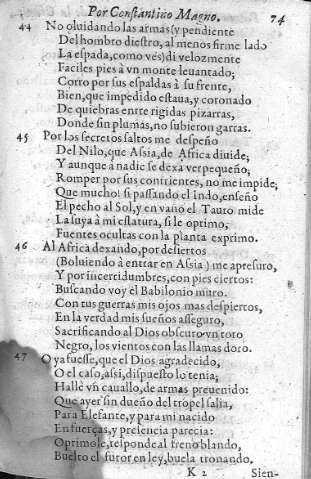 Por Constantino Magno. 74
44 No oluidando las armas (y pendiente
Del hombro diestro, al menos firme lado
La espada, como ves) di velozmente
Faciles pies à vn monte leuantado;
Corro por sus espaldas â su frente,
Bien, que impedido estaua, y coronado
De quiebras entre rigidas pizarras,
Donde sin plumas, no subieron garras.
45 Por los secretos saltos me despeño
Del Nilo, que Assia, de Africa diuide;
Y aunque a nadie se dexa ver pequeño;
Romper por sus corrientes, no me impide;
Que mucho! si passando el Indo, enseño
El pecho al Sol, y en vano el Tauro mide
La suya à mi estatura, si le oprimo;
Fuentes ocultas con la planta exprimo.
46 Al Africa dexando, por desiertos
(Boluiendo à entrar en Assia) me apresuro,
Y por incertidumbres, con pies ciertos:
Buscando voy el Babilonio muro.
Con tus guerras mis ojos mas despiertos,
En la verdad mis sueños asseguro,
Sacrificando al Dios obscuro vn toro
Negro, los vientos con las llamas doro.
47 O ya fuesse, que el Dios agradecido,
O el caso, assi, dispuesto lo tenia;
Hallè vn cauallo, de armas preuenido:
Que ayer sin dueño del tropel salia,
Para Elefante, y para mi nacido
En fuerças, y presencia parecia:
Oprimole, responde al freno blando,
Buelto el furor en ley, buela tronando.
K 2 Sien-